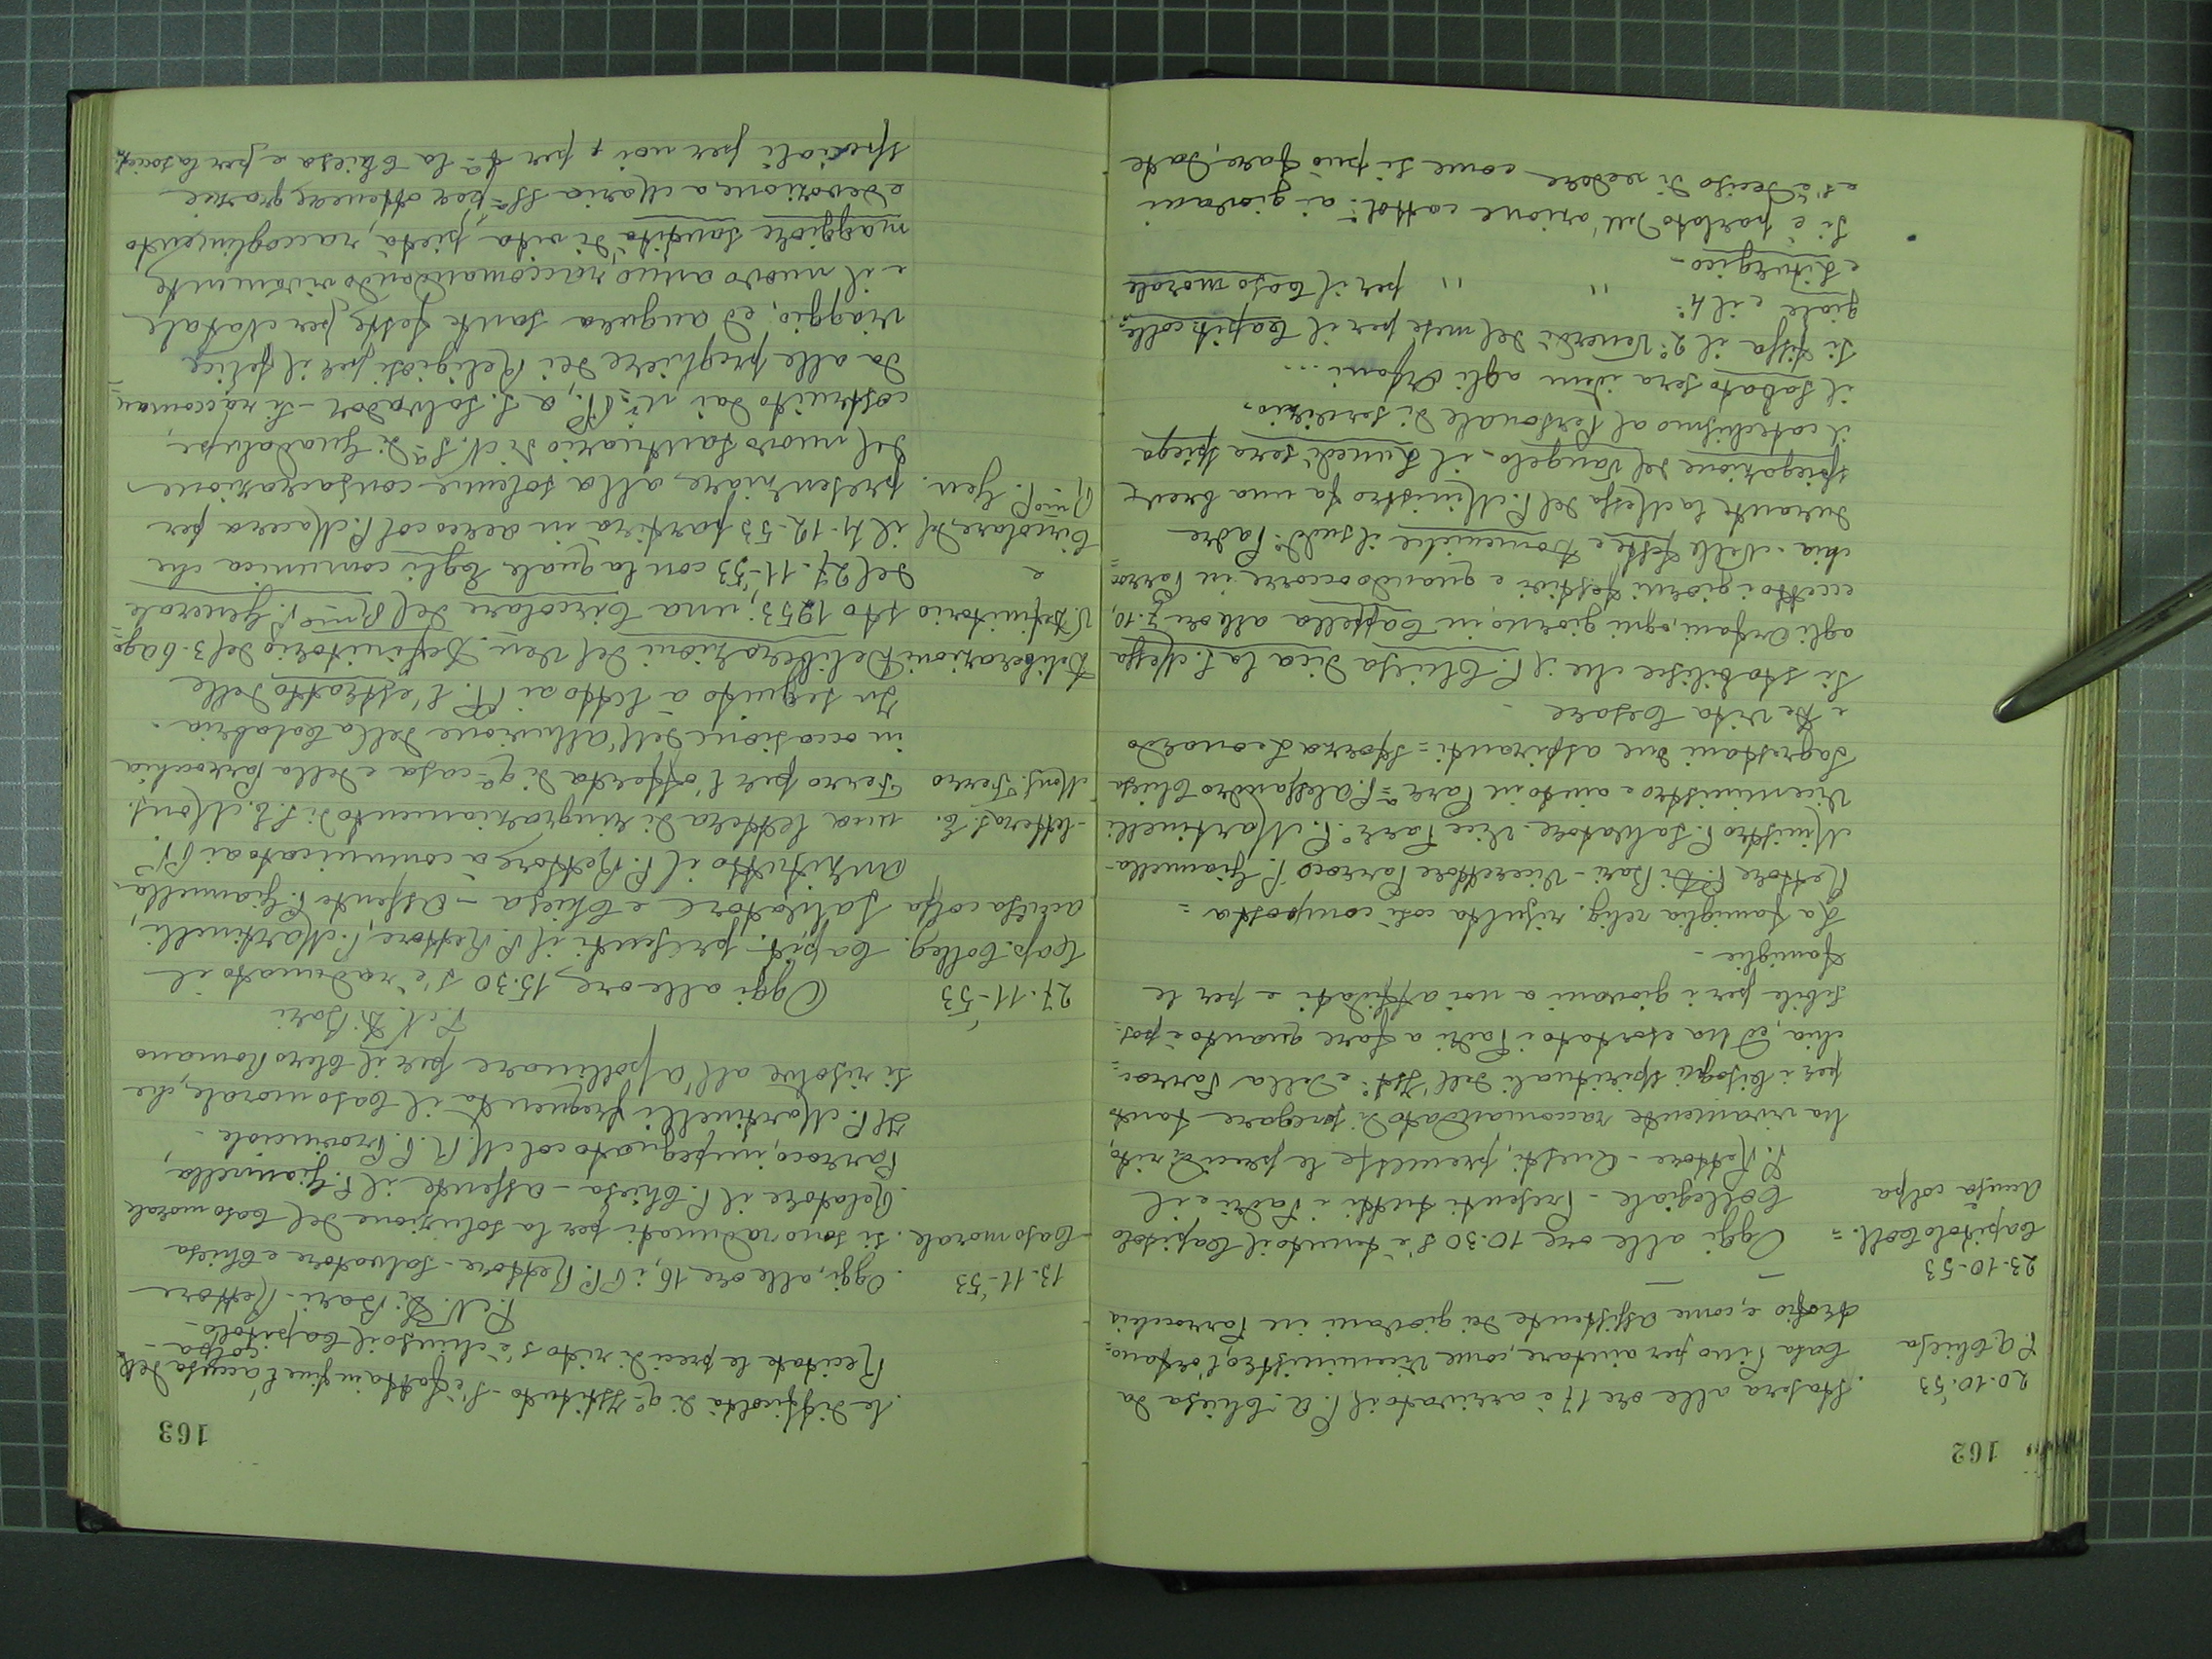 162
20.10.53 Stasera alle ore 17 è arrivato il P. A. Chiesa da
P. A. Chiesa Casa Pino per aiutare, come Viceministro, l'orfano=
trofio e, come assistente dei giovani in Parrochia
23-10-53
Capitolo Coll. = Oggi alle ore 10.30 s'è tenuto il Capitolo
Accusa colpa Collegiale - Presenti tutti i Padri e il
P. Rettore - Questi, premesse le preci di rito,
ha vivamente raccomandato di pregare tanto
per i bisogni spirituali dell'Ist: e della Parroc=
chia, ed ha esortato i Padri a fare quanto è pos=
sibile per i giovani a noi affidati e per le
famiglie -
La famiglia relig. risulta così composta =
Rettore P. Di Bari - Vicerettore Parroco P. Giannella -
Ministro P. Salvatore - Vice Parr° P. Martinelli
Viceministro e aiuto in Parr.ª = P. Alessandro Chiesa
Sagrestani due aspiranti = Sforza Leonardo
e De Vita Cesare -
Si stabilisce che il P. Chiesa dica la S. Messa
agli Orfani, ogni giorno in Cappella alle ore 7.10,
eccetto i giorni festivi e quando occorre in Parroc=
chia. Nelle feste e Domeniche il sudd° Padre
durante la Messa del P. Ministro fa una breve
spiegazione del Vangelo - il Lunedì sera spiega
il catechismo al Personale di servizio.
il Sabato sera idem agli Orfani...
Si fissa il 2° Venerdì del mese per il Capit. colle=
giale e il 4° " " per il Caso morale
e Liturgico -
Si è parlato dell'azione cattol: ai giovani
e s'è deciso di vedere come si può fare, date
163
le difficoltà di q° Istituto - S'è fatta infine l'accusa della
colpa -
Recitate le preci di rito s'è chiuso il Capitolo -
P. N. Di Bari - Rettore
13-11-53 Oggi, alle ore 16, i PP. Rettore - Salvatore e Chiesa
Caso morale. si sono radunati per la soluzione del Caso morale
Relatore il P. Chiesa - assente il P. Giannella,
Parroco, impegnato col M. R. P. Provinciale -
Il P. Martinelli frequenta il Caso morale, che
si risolve all'Apollinare per il Clero Romano
P. N. Di Bari
27-11-53 Oggi alle ore 15.30 s'è radunato il
Cap. Colleg. Capit. - presenti il P. Rettore, P. Martinelli,
accusa colpa Salvatore e Chiesa - Assente P. Giannella -
Anzitutto il P. Rettore à comunicato ai PP.
- lettera S. E. una lettera di ringraziamento di S. E. Mons.
Mons. Ferro Ferro per l'offerta di qª casa e della parrocchia
in occasione dell'alluvione della Calabria.
In seguito à letto ai PP. l'estratto delle
Deliberazioni Deliberazioni del Ven. Definitorio del 3-6 ago=
V. Definitorio sto 1953; una Circolare del R.mo P. Generale
e del 27-11-53 con la quale Egli comunica che
Circolare del il 4-12-53 partirà in aereo col P. Macera per
R.mo P. Gen. presenziare alla solenne consacrazione
del nuovo Santuario di N. Sª di Guadalupe
costruito dai nⁱ PP. a S. Salvador - Si raccoman=
da alle preghiere dei Religiosi per il felice
viaggio, ed augura sante feste per Natale
e il nuovo anno raccomandando vivamente
maggiore santità di vita, pietà, raccoglimento
e devozione a Maria SSª per ottenere grazie
speciali per noi, per la Chiesa e per la società